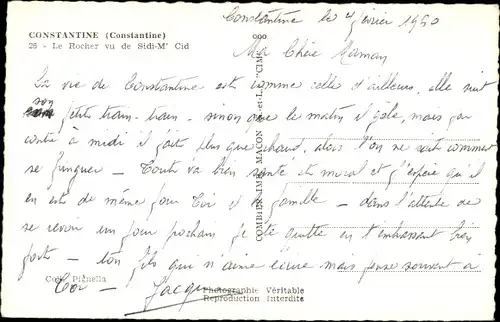 Constantine le 4 février 1950
CONSTANTINE (Constantine)
26 - Le Rocher vu de Sidi-M' Cid
Ma Chère Maman
La vie de Constantine est comme celle d'ailleurs, elle suit
son petit train-train - sinon que le matin il gèle, mais par
contre à midi il fait plus que chaud, alors l'on ne sait comment
se fringuer - Toute va bien santé et moral et j'espère qu'il
en est de même pour Toi et la famille - dans l'attente de
se revoir un jour prochain je te quitte en t'embrassant bien
fort - ton fils qui n'aime écrire mais pense souvent à
Toi - Jacques
COMBIER IMP. MACON (S.-et-L.) "CIM"
Coll. Pignella
Photographie Véritable
Reproduction Interdite